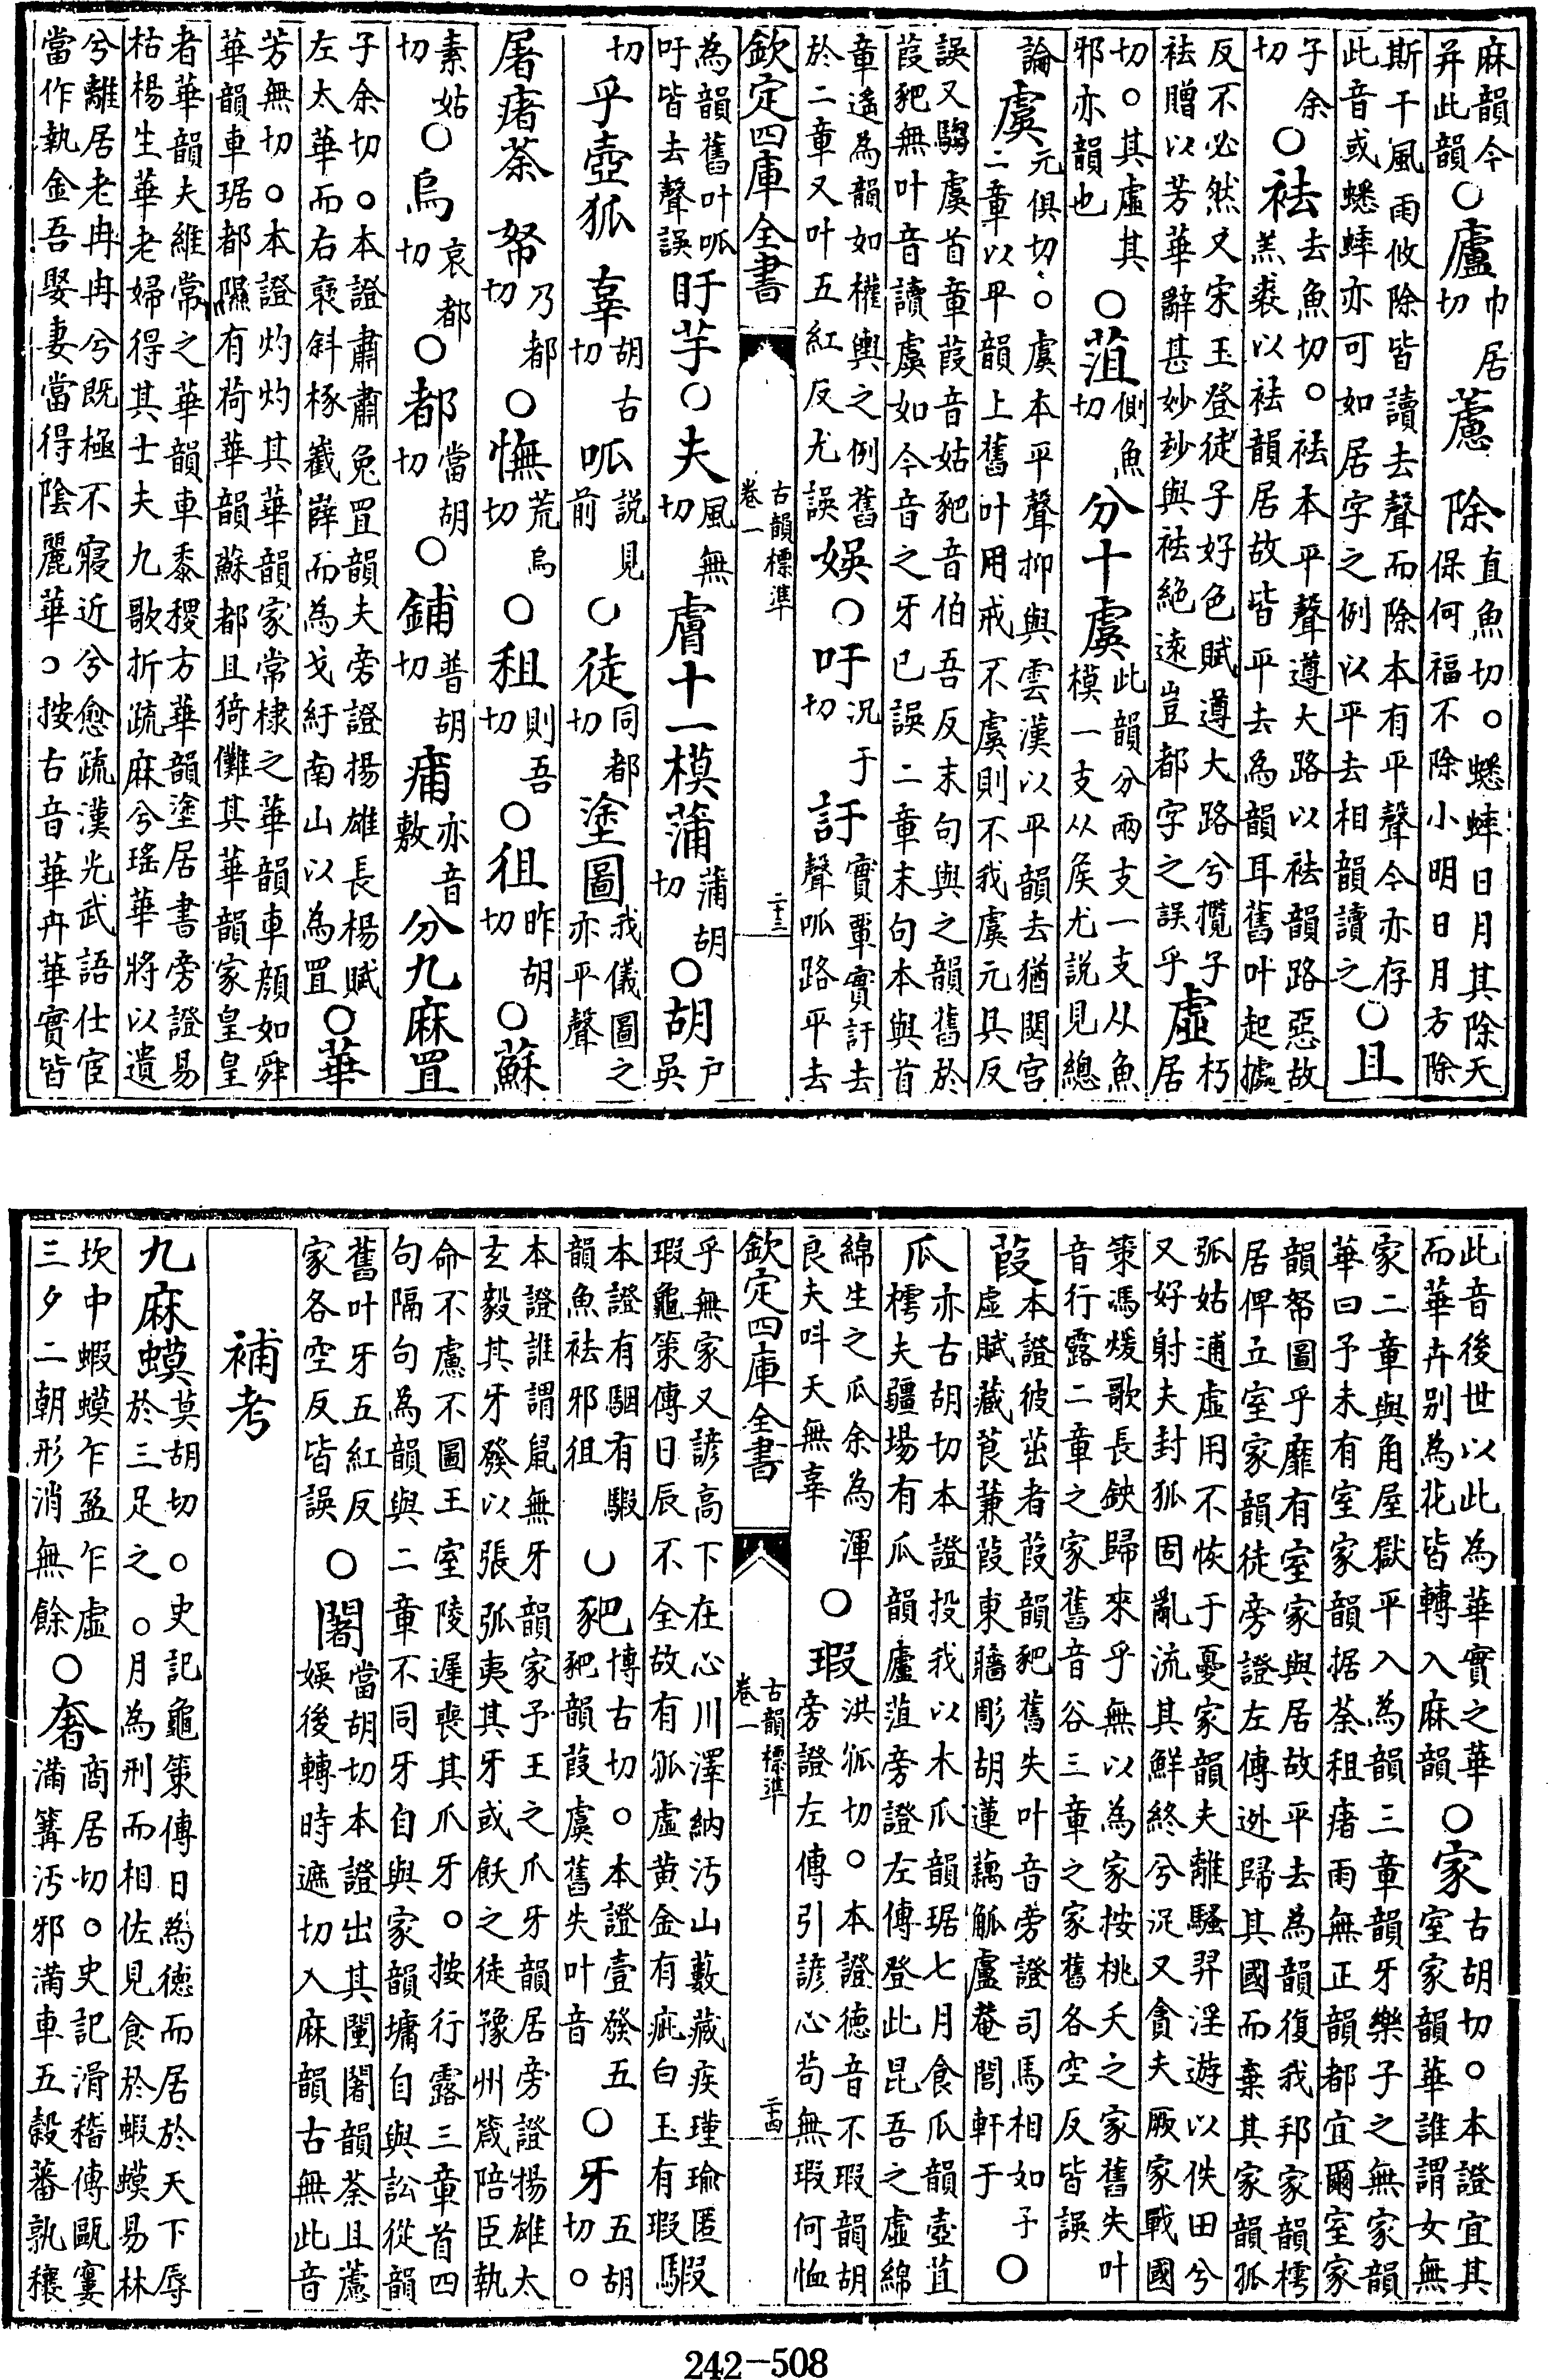 麻韻今并此韻○廬巾居切藘　除直魚切。蟋蟀日月其除天保何福不除小明日月方除
斯干風雨攸除皆讀去聲而除本有平聲今亦存此音或蟋蟀亦可如居字之例以平去相韻讀之○且
子余切○袪去魚切。袪本平聲遵大路以袪韻路惡故羔裘以袪韻居故皆平去為韻耳舊叶起據
反不必然又宋玉登徒子好色賦遵大路兮攬子袪贈以芳華辭甚妙玅與袪絶逺豈都字之誤乎虛朽居
切。其虛其邪亦韻也○菹側魚切分十虞此韻分兩支一支从魚模一支从侯尤說見總
論虞元俱切。虞本平聲抑與雲漢以平韻去猶閟宮二章以平韻上舊叶用戒不虞則不我虞元具反
誤又騶虞首章葭音姑豝音伯吾反末句與之韻舊於葭豝無叶音讀虞如今音之牙已誤二章末句本與首
章遙為韻如權輿之例舊於二章又叶五紅反尤誤娛○吁況于切訏實覃實訏去聲呱路平去
欽定四庫全書　古韻標準卷一　二十三
為韻舊叶呱吁皆去聲誤盱芋○夫風無切膚十一模蒲蒲胡切○胡戶吳
切乎壺狐辜胡古切呱說見前○徒同都切塗圖我儀圖之亦平聲
屠瘏荼帑乃都切○幠荒烏切○租則吾切○徂昨胡切○蘇
素姑切○烏哀都切○都當胡切○鋪普胡切痡亦音敷分九麻罝
子余切。本證肅肅兔罝韻夫旁證揚雄長楊賦左太華而右褒斜椓嶻嶭而為弋紆南山以為罝○華
芳無切。本證灼灼其華韻家常棣之華韻車顏如舜華韻車琚都隰有荷華韻蘇都且猗儺其華韻家皇皇
者華韻夫維常之華韻車黍稷方華韻塗居書旁證易枯楊生華老婦得其士夫九歌折疏麻兮瑤華將以遺
兮離居老冉冉兮既極不寖近兮愈疏漢光武語仕宦當作執金吾娶妻當得陰麗華。按古音華卉華實皆
此音後世以此為華實之華而華卉別為花皆轉入麻韻○家古胡切。本證宜其室家韻華誰謂女無
家二章與角屋獄平入為韻三章韻牙樂子之無家韻華曰予未有室家韻据荼租瘏雨無正韻都宜爾室家
韻帑圖乎靡有室家與居故平去為韻復我邦家韻樗居俾立室家韻徒旁證左傳逊歸其國而棄其家韻孤
弧姑逋虛用不恢于憂家韻夫離騷羿淫遊以佚田兮又好射夫封狐固亂流其鮮終兮浞又貪夫厥家戰國
策馮煖歌長鋏歸來乎無以為家按桃夭之家舊失叶音行露二章之家舊音谷三章之家舊各空反皆誤
葭本證彼茁者葭韻豝舊失叶音旁證司馬相如子虛賦藏莨蒹葭東牆彫胡蓮藕觚盧菴閭軒于○
瓜亦古胡切本證投我以木瓜韻琚七月食瓜韻壺苴樗夫疆場有瓜韻廬菹旁證左傳登此昆吾之虛綿
綿生之瓜余為渾良夫呌天無辜○瑕洪孤切。本證德音不瑕韻胡旁證左傳引諺心苟無瑕何恤
欽定四庫全書　古韻標準卷一　二十四
乎無家又諺高下在心川澤納汚山藪藏疾瑾瑜匿瑕龜策傳日辰不全故有孤虛黃金有疵白玉有瑕騢
本證有駰有騢韻魚袪邪徂○豝博古切。本證壹發五豝韻葭虞舊失叶音○牙五胡切。
本證誰謂鼠無牙韻家予王之爪牙韻居旁證揚雄太玄豶其牙發以張弧夷其牙或飫之徒豫州箴陪臣執
命不慮不圖王室陵遲喪其爪牙。按行露三章首四句隔句為韻與二章不同牙自與家韻墉自與訟從韻
舊叶牙五紅反家各空反皆誤○闍當胡切本證出其闉闍韻荼且藘娛後轉時遮切入麻韻古無此音
補考
九麻蟆莫胡切。史記龜策傳日為德而居於天下辱於三足之。月為刑而相佐見食於蝦蟆易林
坎中蝦蟆乍盈乍虛三夕二朝形消無餘○奢商居切。史記滑稽傳甌窶滿篝汚邪滿車五穀蕃孰穰
242-508